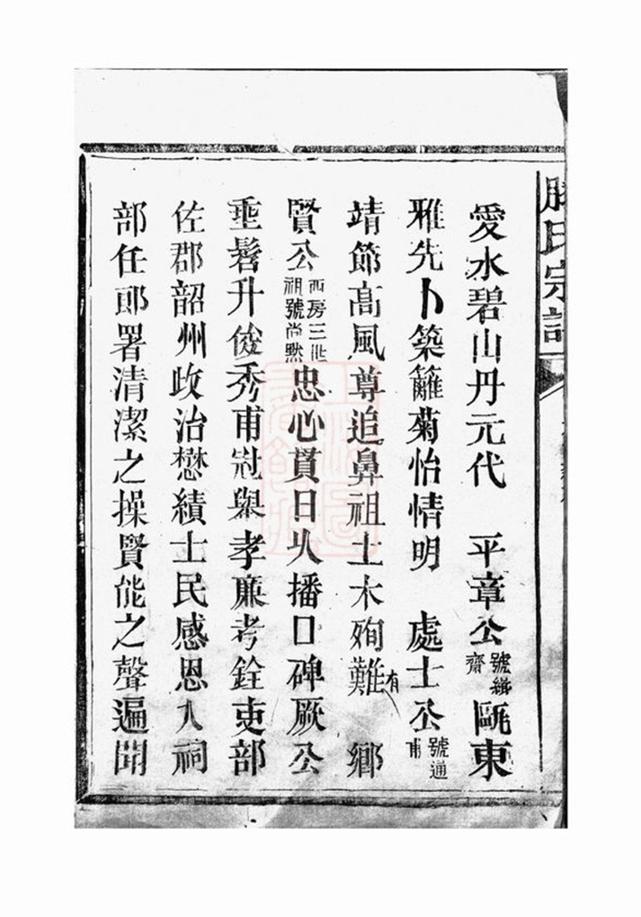 滕氏宗譜
愛水碧山丹元代　平章公號緝齋甌東
雅先卜築籬菊怡情明　處士公號通甫
靖節高風尊追鼻祖土木殉難有　鄉
賢公西房三世祖號尚黙忠心貫日久播口碑厥公
垂髫升俊秀甫冠舉孝廉考銓吏部
佐郡韶州政治懋績士民感恩入祠
部任郎署清潔之操賢能之聲遍聞